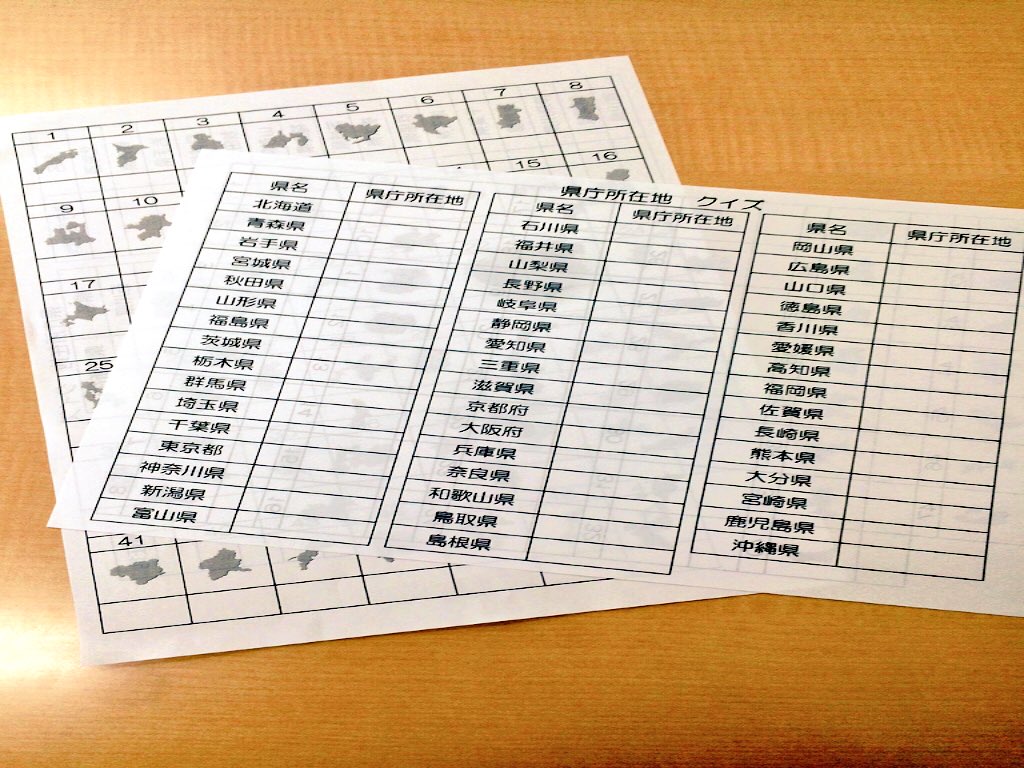 1 2 3 4 5 6 7 8
15 16
9 10
17
25
41
県庁所在地 クイズ
県名 県庁所在地
北海道
青森県
岩手県
宮城県
秋田県
山形県
福島県
茨城県
栃木県
群馬県
埼玉県
千葉県
東京都
神奈川県
新潟県
富山県
県名 県庁所在地
石川県
福井県
山梨県
長野県
岐阜県
静岡県
愛知県
三重県
滋賀県
京都府
大阪府
兵庫県
奈良県
和歌山県
鳥取県
島根県
県名 県庁所在地
岡山県
広島県
山口県
徳島県
香川県
愛媛県
高知県
福岡県
佐賀県
長崎県
熊本県
大分県
宮崎県
鹿児島県
沖縄県